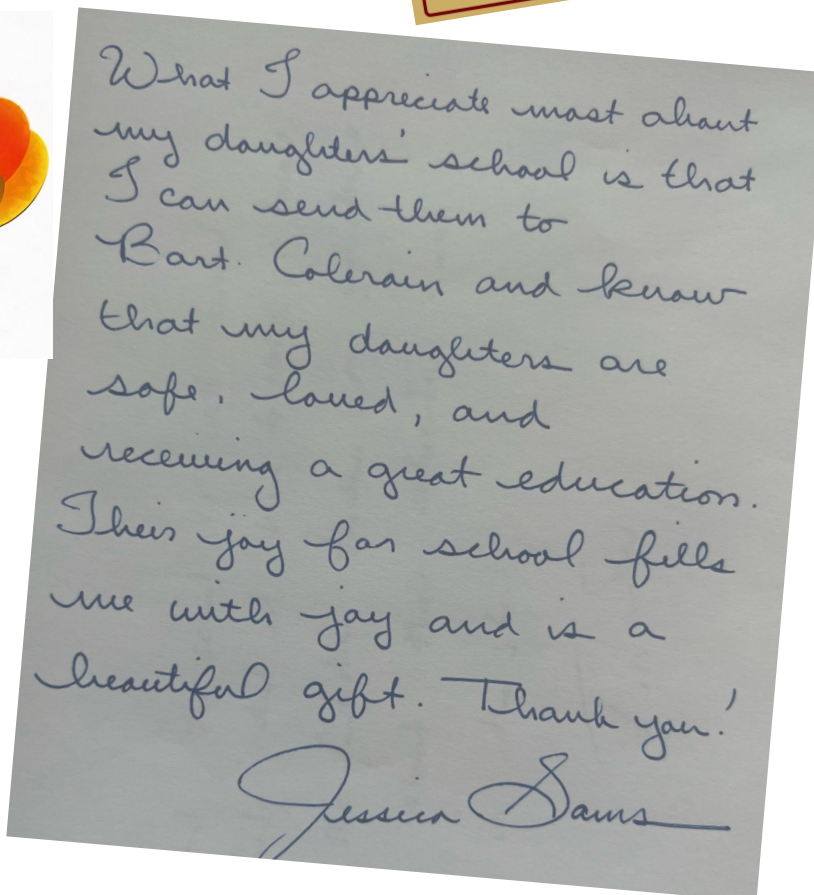 What I appreciate most about
my daughters' school is that
I can send them to
Bart. Colerain and know
that my daughters are
safe, loved, and
receiving a great education.
Their joy for school fills
me with joy and is a
beautiful gift. Thank you!
Jessica Sams